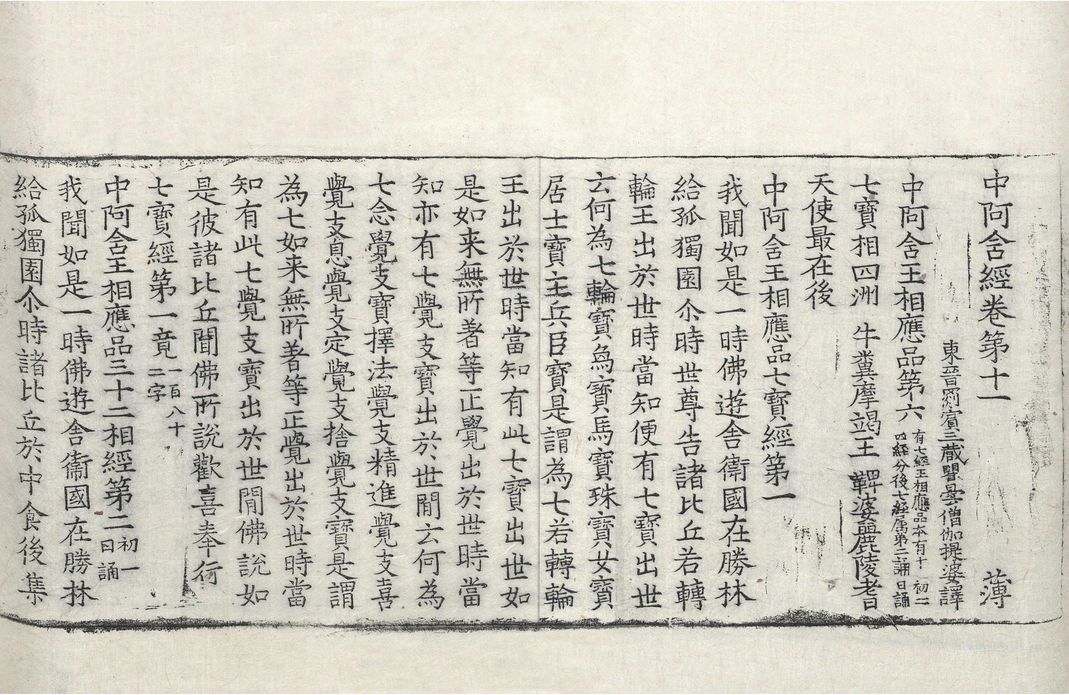 中阿含經卷第十一 薄
東晉罽賓三藏瞿曇僧伽提婆譯
中阿含王相應品第六 有七經王相應品本有十四經分後七經屬第二誦 初一日誦
七寶相四洲 牛糞摩竭王 鞞婆麗陵耆
天使最在後
中阿含王相應品七寶經第一
我聞如是一時佛遊舍衛國在勝林
給孤獨園尒時世尊告諸比丘若轉
輪王出於世時當知便有七寶出世
云何為七輪寶象寶馬寶珠寶女寶
居士寶主兵臣寶是謂為七若轉輪
王出於世時當知有此七寶出世如
是如来無所著等正覺出於世時當
知亦有七覺支寶出於世間云何為
七念覺支寶擇法覺支精進覺支喜
覺支息覺支定覺支捨覺支寶是謂
為七如来無所著等正覺出於世時當
知有此七覺支寶出於世間佛說如
是彼諸比丘聞佛所說歡喜奉行
七寶經第一竟 一百八十二字
中阿含王相應品三十二相經第二 初一日誦
我聞如是一時佛遊舍衛國在勝林
給孤獨園尒時諸比丘於中食後集